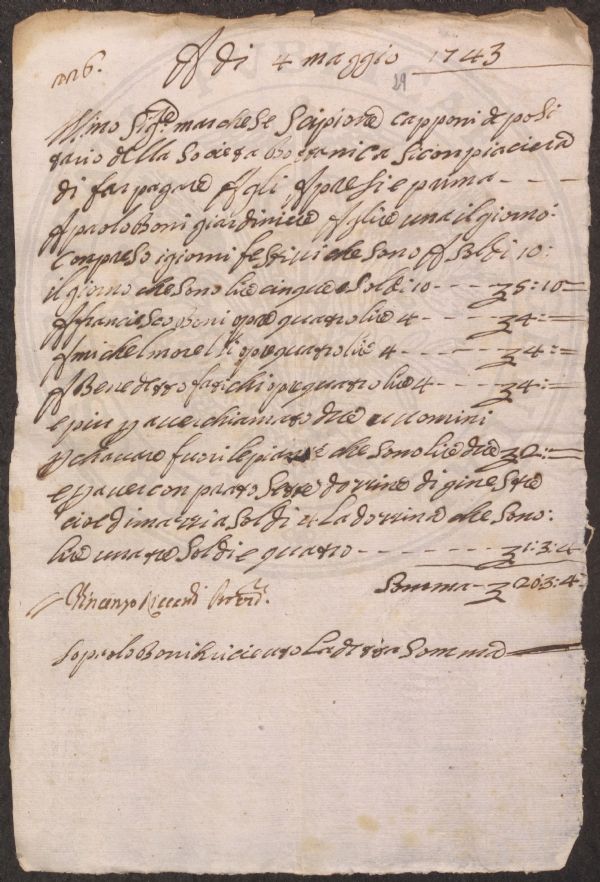 A di 4 maggio 1743
n° 26.
29
Ill.mo Sig.re marchese Scipione capponi de posi
tario della Societa Bottanica Si conpiacierà
di far pagare A gli Apresi e prima - - -
A paolo Boni giardiniere A lire una il giorno
Conpreso i giorni festivi che sono A Soldi 10:
il giorno che sono lire cinque e Soldi 10 - - - £ 5:10=
A francesco Boni opre quatro lire 4 - - - £ 4:=
A michel morelli opre quatro lire 4 - - - £ 4:=
A Benedetto faschi opre quatro lire 4 - - - £ 4:=
e piu p aver chiamato due uomini
p chavare fuori le piante che sono lire due £ 2:=
e p aver conprato Sette dozzine di ginestre
cioe di mazzi a Soldi la dozzina che sono:
lire una tre Soldi e quatro - - - £ 1:3:4
Somma - £ 20:3:4
Vincenzo Riccardi Proved.re
Io paolo Boni ho riceuto La detta Somma